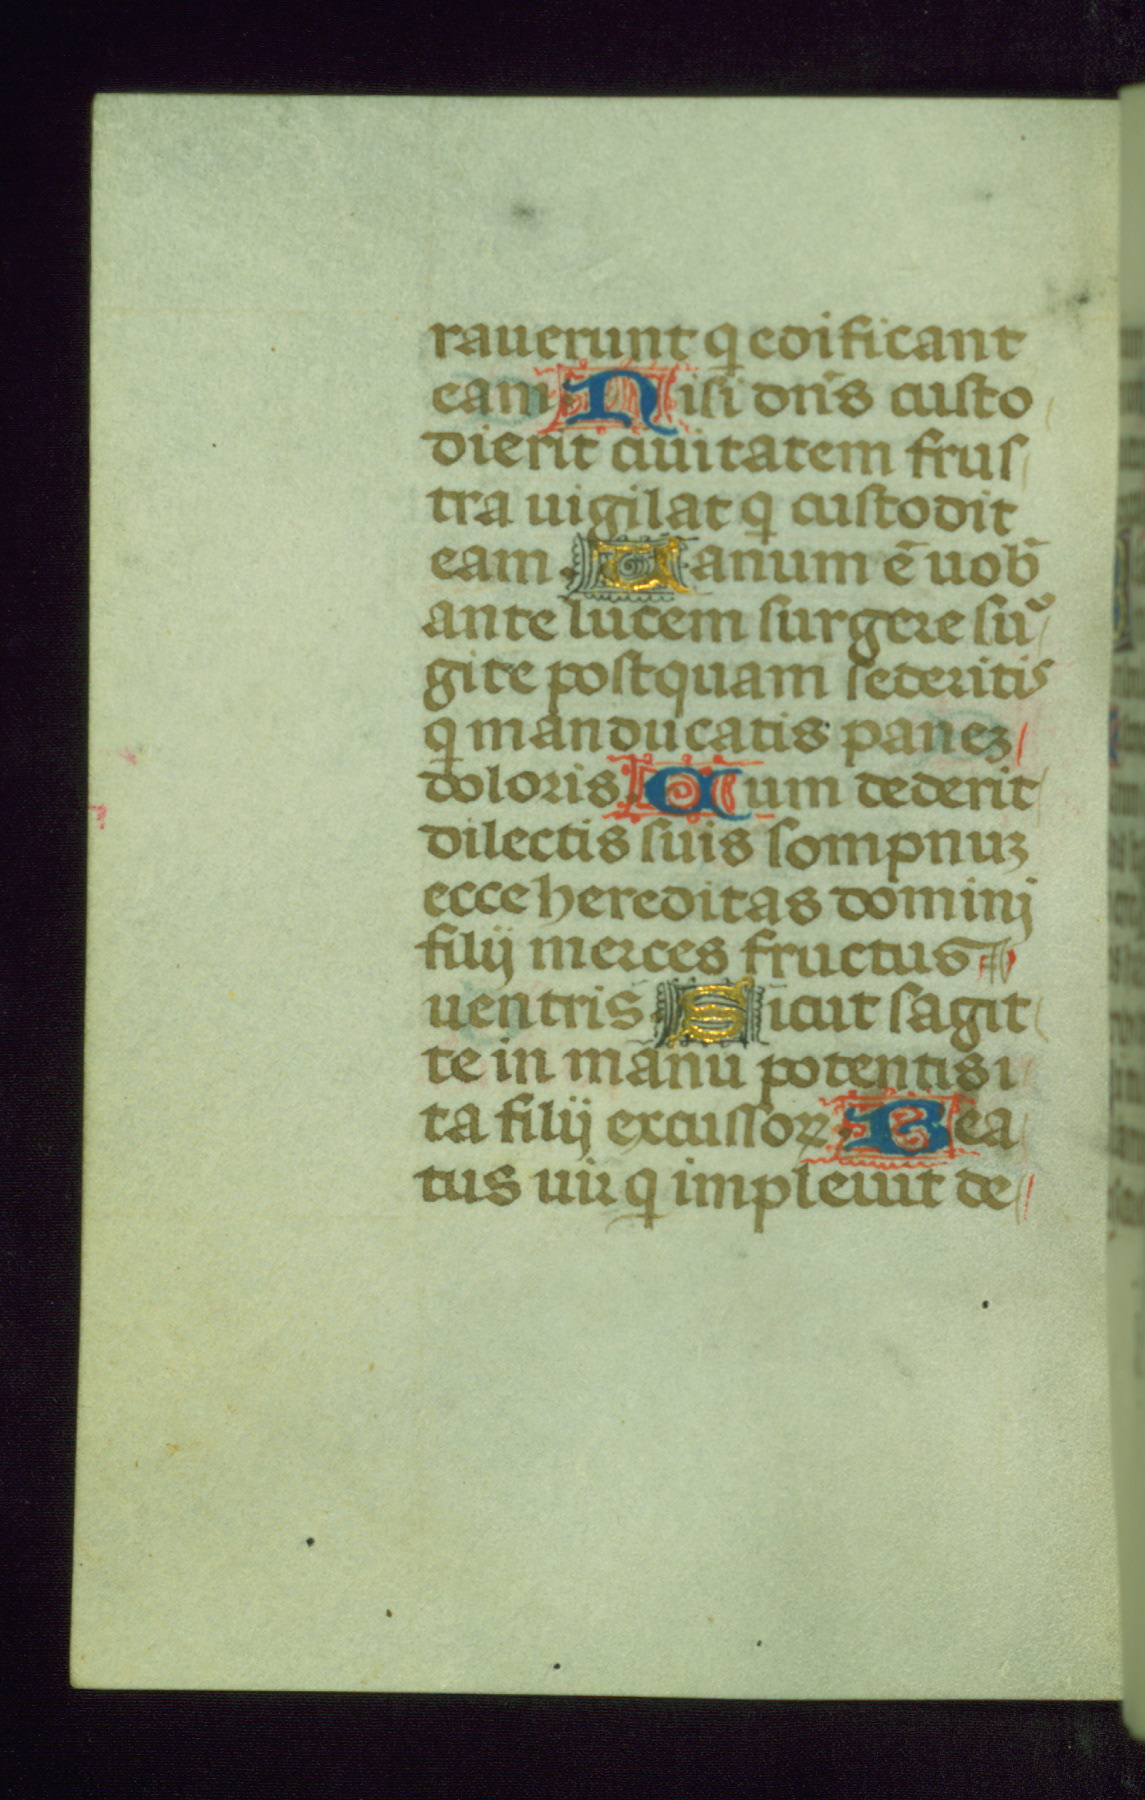 rauerunt q̇ edificant
eam Nisi dñs custo
dierit ciuitatem frus
tra uigilat q̇ custodit
eam. Uanum ē uob̄
ante lucem surgere su
gite postquam sederitis
q̇ manducatis panez
doloris. Cum dederit
dilectis suis sompnuz
ecce hereditas dominj
filij merces fructus
uentris. Sicut sagit
te in manu potentis i
ta filij excussoꝝ. Bea
tus uir q̇ impleuit de